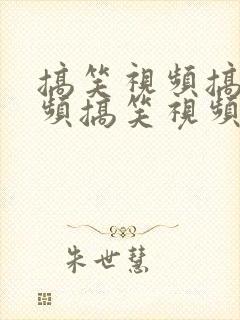 搞笑視頻搞
頻搞笑視頻
朱世慧